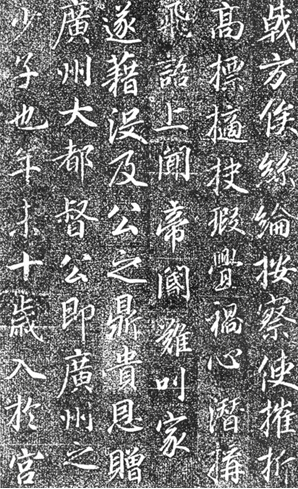 戟方俟絲綸按察使摧折
高標擿抉瑕舋禍心潛搆
飛語上聞帝閽難叫家
遂藉沒及公之鼎貴恩贈
廣州大都督公即廣州之
少子也年未十歲入於宮